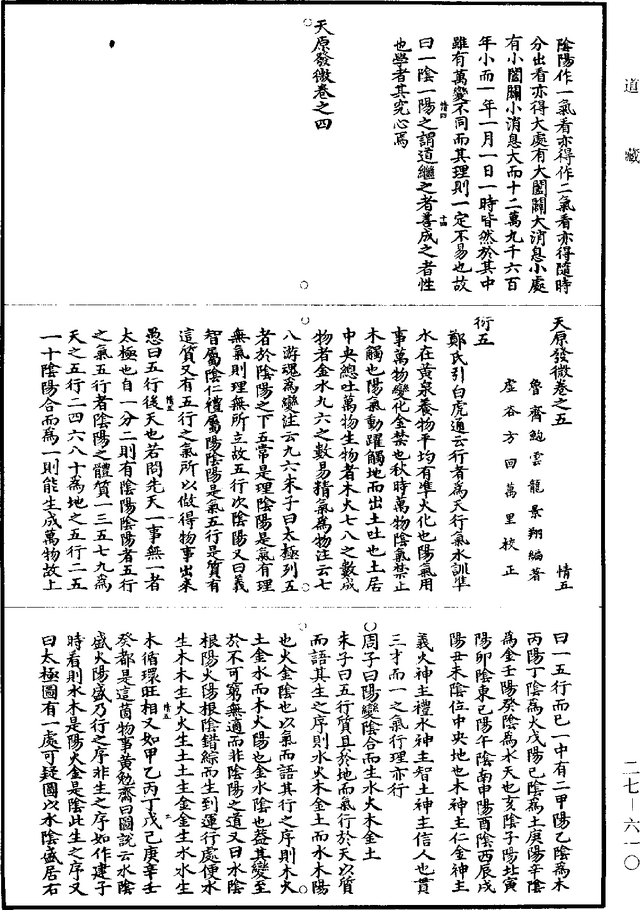 道藏
陰陽作一氣看亦得作二氣看亦得隨時
分出看亦得大處有大闔闢大消息小處
有小闔闢小消息大而十二萬九千六百
年小而一年一月一日一時皆然於其中
雖有萬變不同而其理則一定不易也故
曰一陰一陽之謂道繼之者善成之者性
也學者其究心焉
天原發微卷之四
天原發微卷之五
情五
魯齋鮑雲龍景翔編著
虛谷方回萬里校正
衍五
鄭氏引白虎通云行者為天行氣水訓準
水在黃泉養物平均有準火化也陽氣用
事萬物變化金禁也秋時萬物陰氣禁止
木觸也陽氣動躍觸地而出土吐也土居
中央總吐萬物生物者木火七八之數成
物者金水九六之數易精氣為物注云七
八游魂為變注云九六朱子曰太極列五
者於陰陽之下五常是理陰陽是氣有理
無氣則理無所立故五行次陰陽又曰義
智屬陰仁禮屬陽陰陽是氣五行是質有
這質又有五行之氣所以做得物事出來
愚曰五行後天也若問先天一事無一者
太極也自一分二則有陰陽陰陽者五行
之氣五行者陰陽之體質一三五七九為
天之五行二四六八十為地之五行二五
一十陰陽合而為一則能生成萬物故上
曰一五行而已一中有二甲陽乙陰為木
丙陽丁陰為火戊陽己陰為土庚陽辛陰
為金壬陽癸陰為水天也亥陰子陽北寅
陽卯陰東巳陽午陰南申陽酉陰西辰戌
陽丑未陰位中央地也木神主仁金神主
義火神主禮水神主智土神主信人也貫
三才而一之氣行理亦行
周子曰陽變陰合而生水火木金土
朱子曰五行質具於地而氣行於天以質
而語其生之序則水火木金土而水木陽
也火金陰也以氣而語其行之序則木火
土金水而木火陽也金水陰也蓋其變至
於不可窮無適而非陰陽之道又曰水陰
根陽火陽根陰錯綜而生到運行處便水
生木木生火火生土土生金金生水水生
木循環旺相又如甲乙丙丁戊己庚辛壬
癸都是這箇物事黃勉齋曰圖說云水陰
盛火陽盛乃行之序非生之序如作建子
時看則水木是陽火金是陰此生之序又
曰太極圖有一處可疑圖以水陰盛居右
二七—六一〇